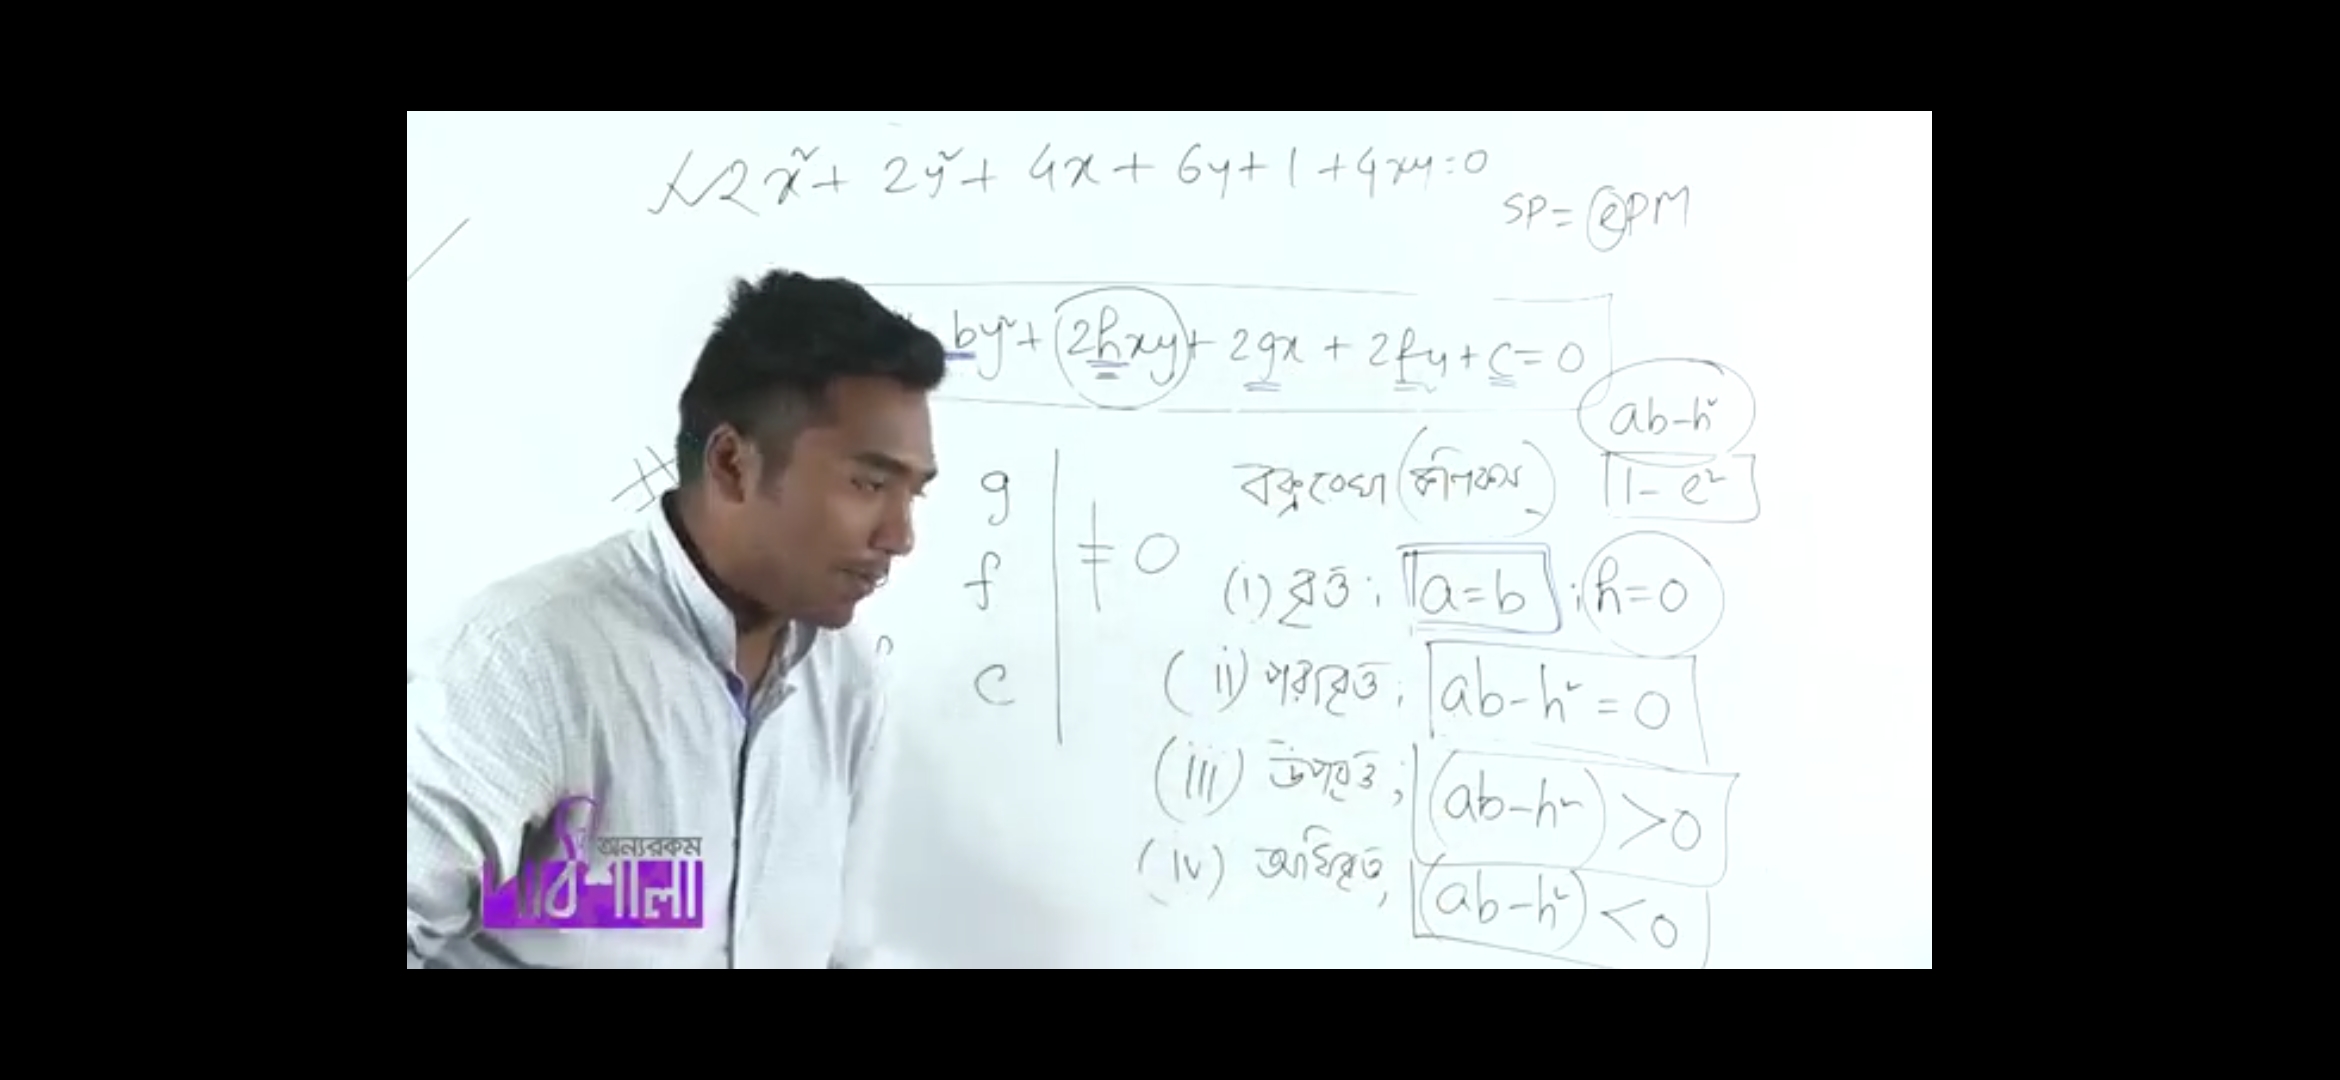 2x² + 2y² + 4x + 6y + 1 + 4xy = 0
SP = ePM
by² + 2hxy + 2gx + 2fy + c = 0
ab-h²
বক্ররেখা (কনিকের)
1 - e²
g
f
c
≠ 0
(i) বৃত্ত ; a = b ; h = 0
(ii) পরাবৃত্ত ; ab - h² = 0
(iii) উপবৃত্ত ; (ab - h²) > 0
(iv) অধিবৃত্ত, (ab - h²) < 0
অন্যরকম
পাঠশালা